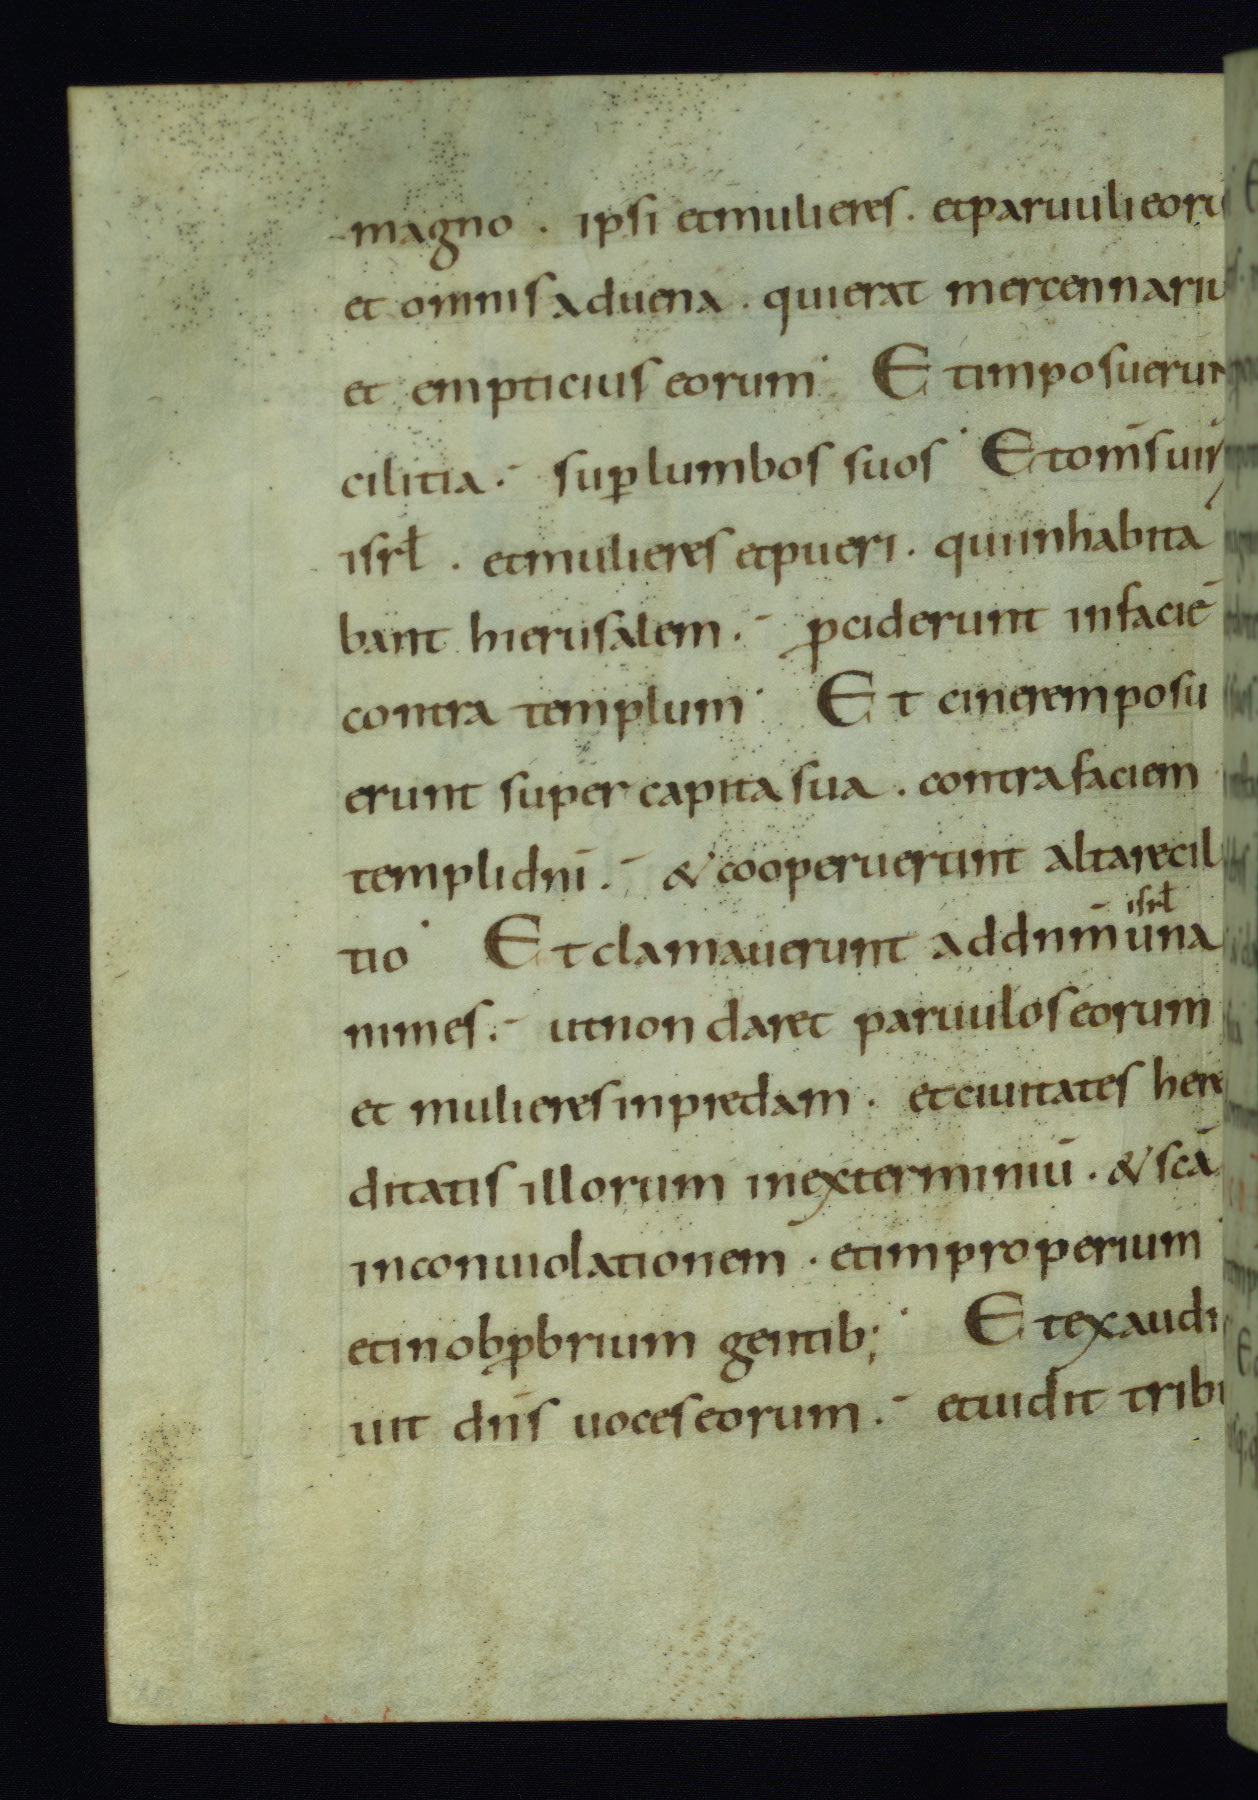 magno . ipsi etmulieres . etparuulieoru
et omnis aduena . quierat mercennariu
et empticius eorum · Et imposuerun
cilitia .- sup̄ lumbos suos · Et om̄s uir
isrł . etmulieres etpueri . quiinhabita
bant hierusalem .- ꝓciderunt infaciē
contra templum · Et cineremposu
erunt super capita sua . contrafaciem
templi dn̄i .- & cooperuerunt altarecil
isrł
tio · Et clamauerunt addn̄m una
nimes .- utnon daret paruuloseorum
et mulieresinpredam . etciuitates here
ditatis illorum inexterminiū . & scā
inconuiolationem . etimproperium
etinobꝓbrium gentib; · Et exaudi
uit dn̄s uoceseorum .- etuidit tribu